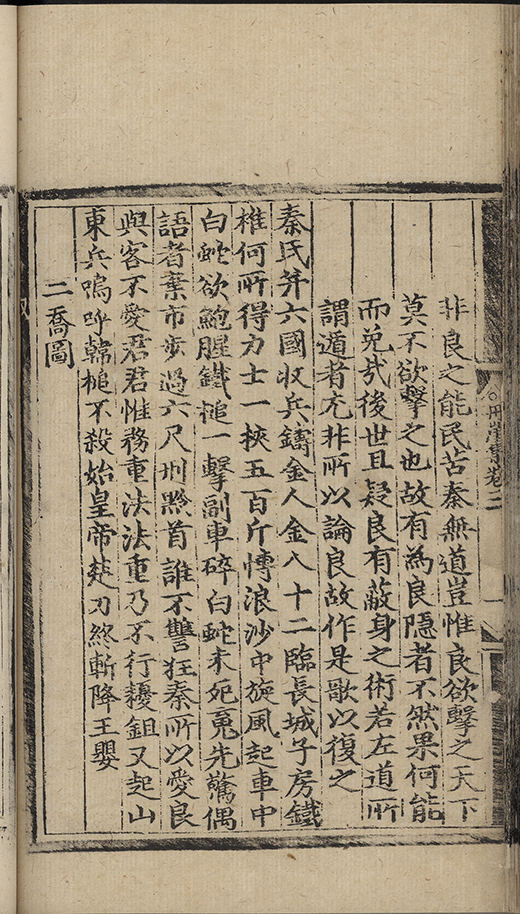 冊崖集卷二
非良之能民苦秦無道豈惟良欲擊之天下
莫不欲擊之也故有為良隱者不然果何能
而免㢤後世且疑良有蔽身之術若左道所
謂遁者尤非所以論良故作是歌以復之
秦氏并六國收兵鑄金人金人十二臨長城子房鐵
椎何所得力士一挾五百斤愽浪沙中旋風起車中
白虵欲鮑腥鐵槌一擊副車碎白虵未死䰟先驚偶
語者棄市步過六尺刑黔首誰不讐狂秦所以愛良
與客不愛君君惟務重法法重乃不行耰鉏又起山
東兵嗚呼韓槌不殺始皇帝楚刀終斬降王嬰
二喬圖